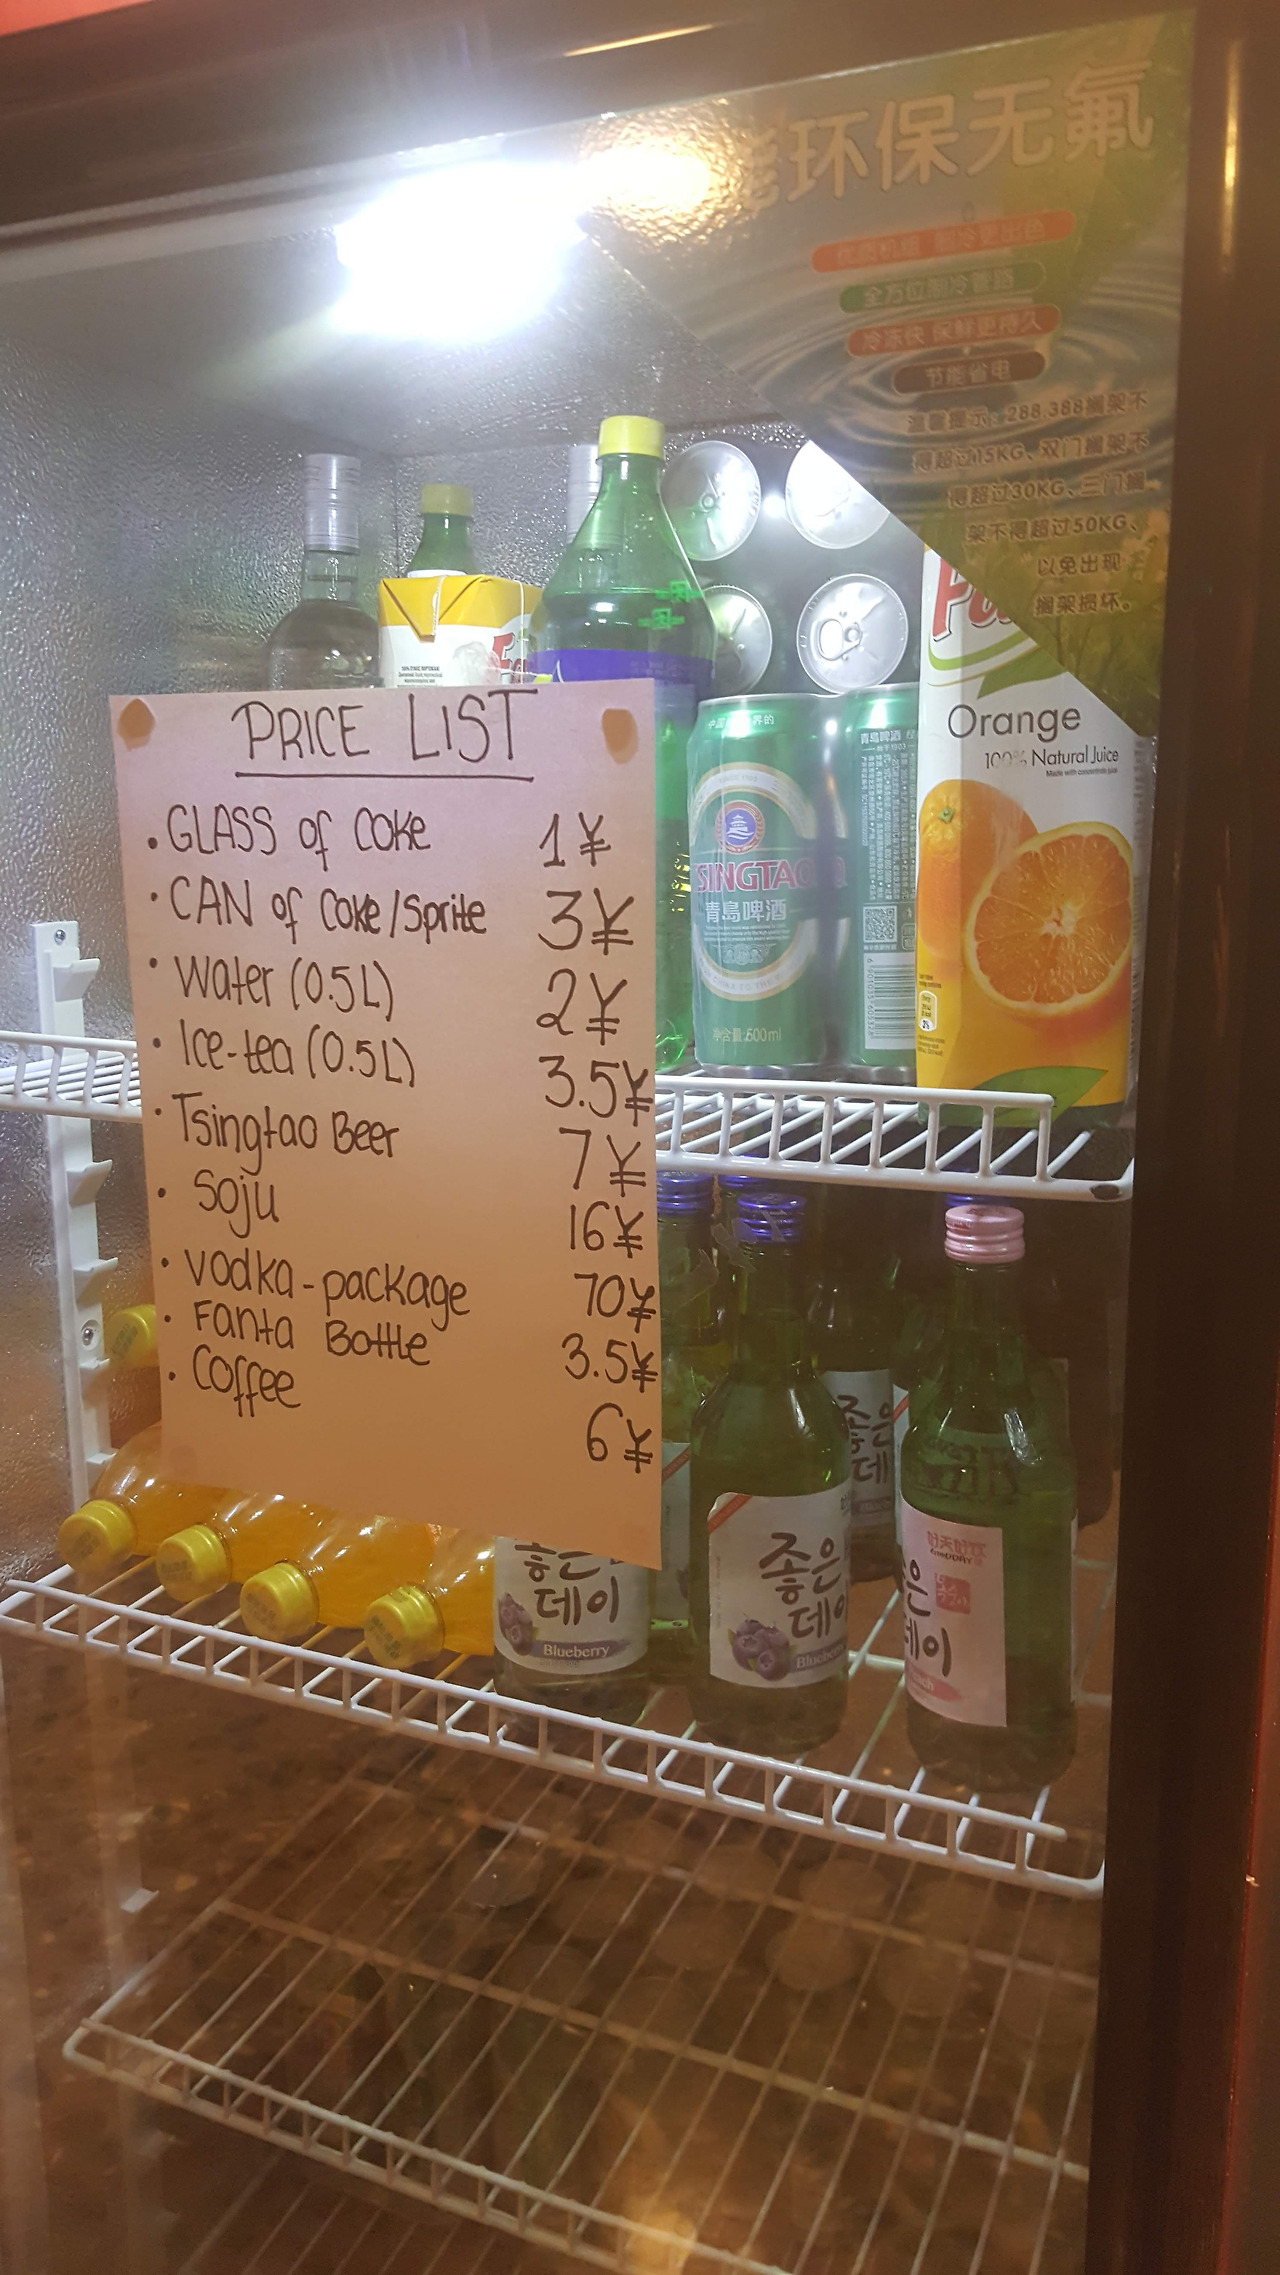 能环保无氟
优质机组 制冷更出色
全方位制冷管路
冷冻快 保鲜更持久
节能省电
温馨提示: 288.388搁架不
得超过15KG、双门搁架不
得超过30KG、三门搁
架不得超过50KG、
以免出现
搁架损坏。
PRICE LIST
• GLASS of Coke 1¥
• CAN of Coke/Sprite 3¥
• Water (0.5L) 2¥
• Ice-tea (0.5L) 3.5¥
• Tsingtao Beer 7¥
• Soju 16¥
• Vodka-package 70¥
• Fanta Bottle 3.5¥
• Coffee 6¥
TSINGTAO
青島啤酒
净含量:500ml
青島啤酒
Orange
100% Natural Juice
Made with concentrate juice
좋은
데이
Blueberry
좋은
데이
Blueberry
좋은
데이
好天好饮
GOODDAY
은
데이